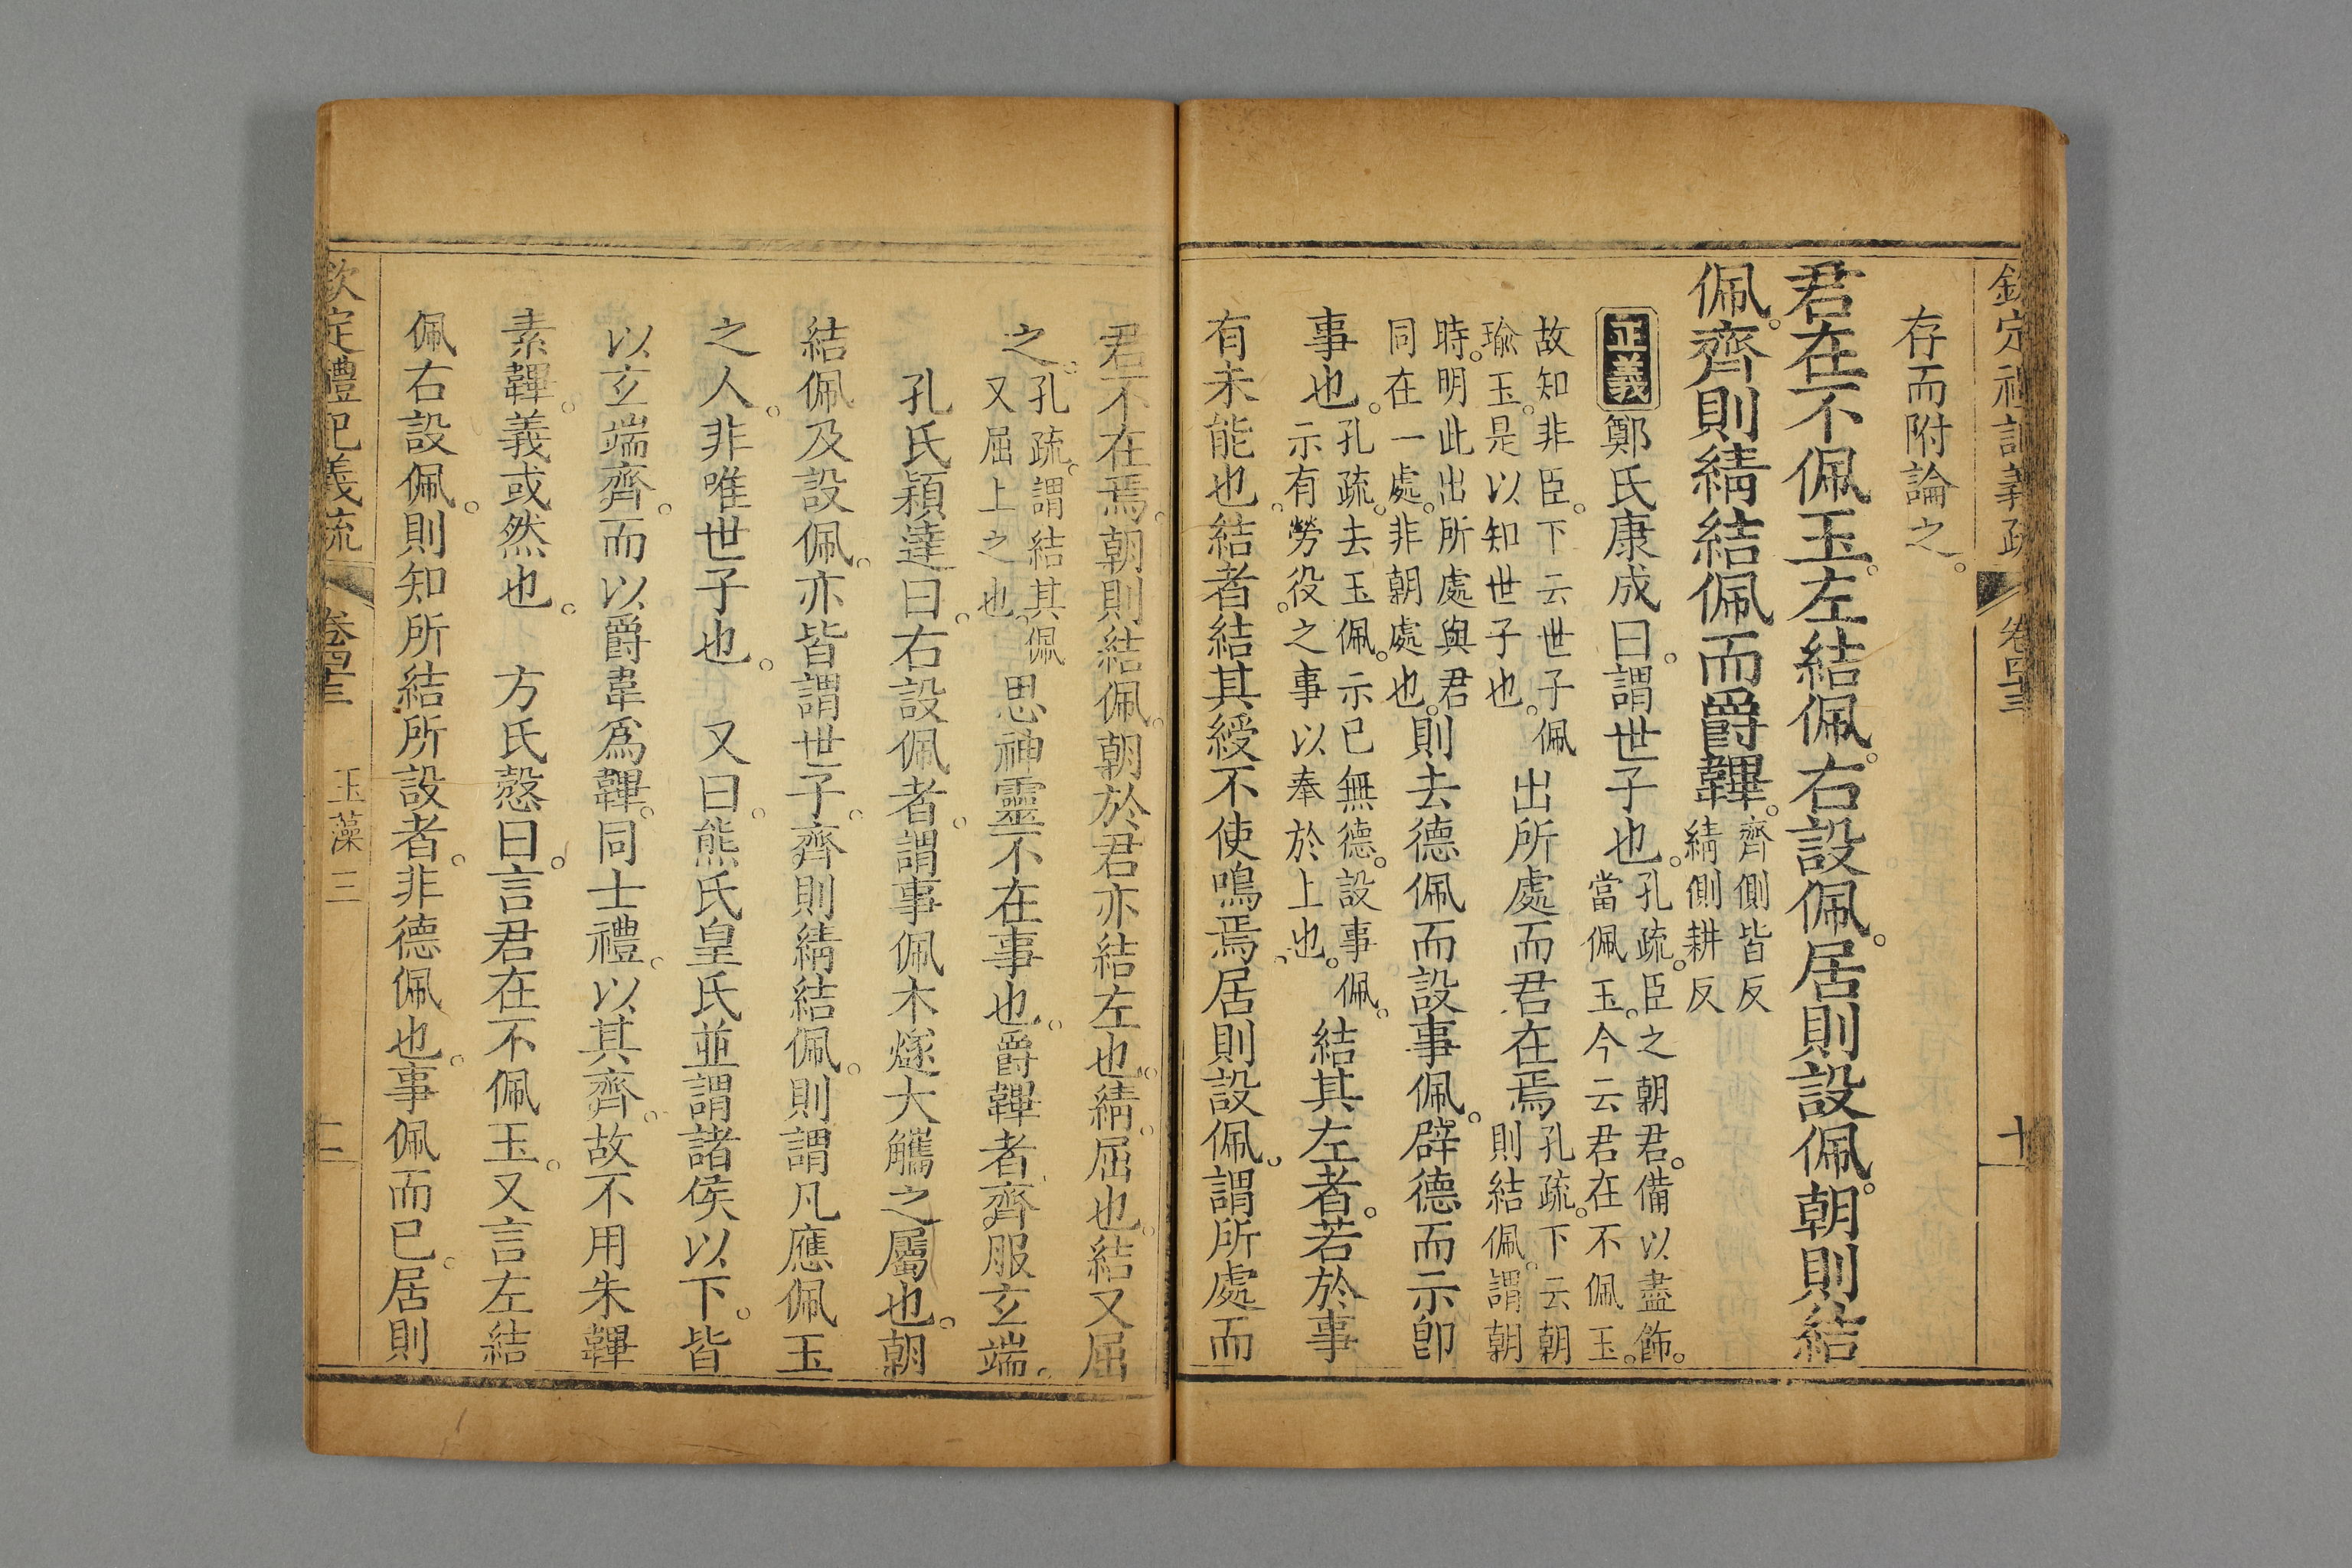 欽定禮記義疏 卷四十三 十
存而附論之。
君在不佩玉。左結佩。右設佩。居則設佩。朝則結
佩。齊則綪結佩而爵韠。齊側皆反
綪側耕反
正義鄭氏康成曰。謂世子也。孔疏。臣之朝君。備以盡飾。
當佩玉。今云君在不佩玉。
故知非臣。下云世子佩
瑜玉。是以知世子也。出所處而君在焉孔疏。下云朝
則結佩。謂朝
時。明此出所處與君
同在一處。非朝處也。則去德佩而設事佩。辟德而示卽
事也。孔疏。去玉佩。示已無德。設事佩。
示有勞役之事以奉於上也。結其左者。若於事
有未能也。結者結其綬不使鳴焉。居則設佩。謂所處而
君不在焉。朝則結佩。朝於君亦結左也。綪屈也。結又屈
之。孔疏。謂結其佩
又屈上之也。思神靈不在事也。爵韠者齊服玄端。
孔氏穎達曰。右設佩者。謂事佩木燧大觿之屬也。朝
結佩及設佩。亦皆謂世子。齊則綪結佩。則謂凡應佩玉
之人。非唯世子也。 又曰。熊氏皇氏並謂諸侯以下。皆
以玄端齊。而以爵韋爲韠。同士禮。以其齊。故不用朱韠
素韠。義或然也。 方氏慤曰。言君在不佩玉。又言左結
佩右設佩。則知所結所設者。非德佩也。事佩而已。居則
欽定禮記義疏 卷四十三 玉藻三